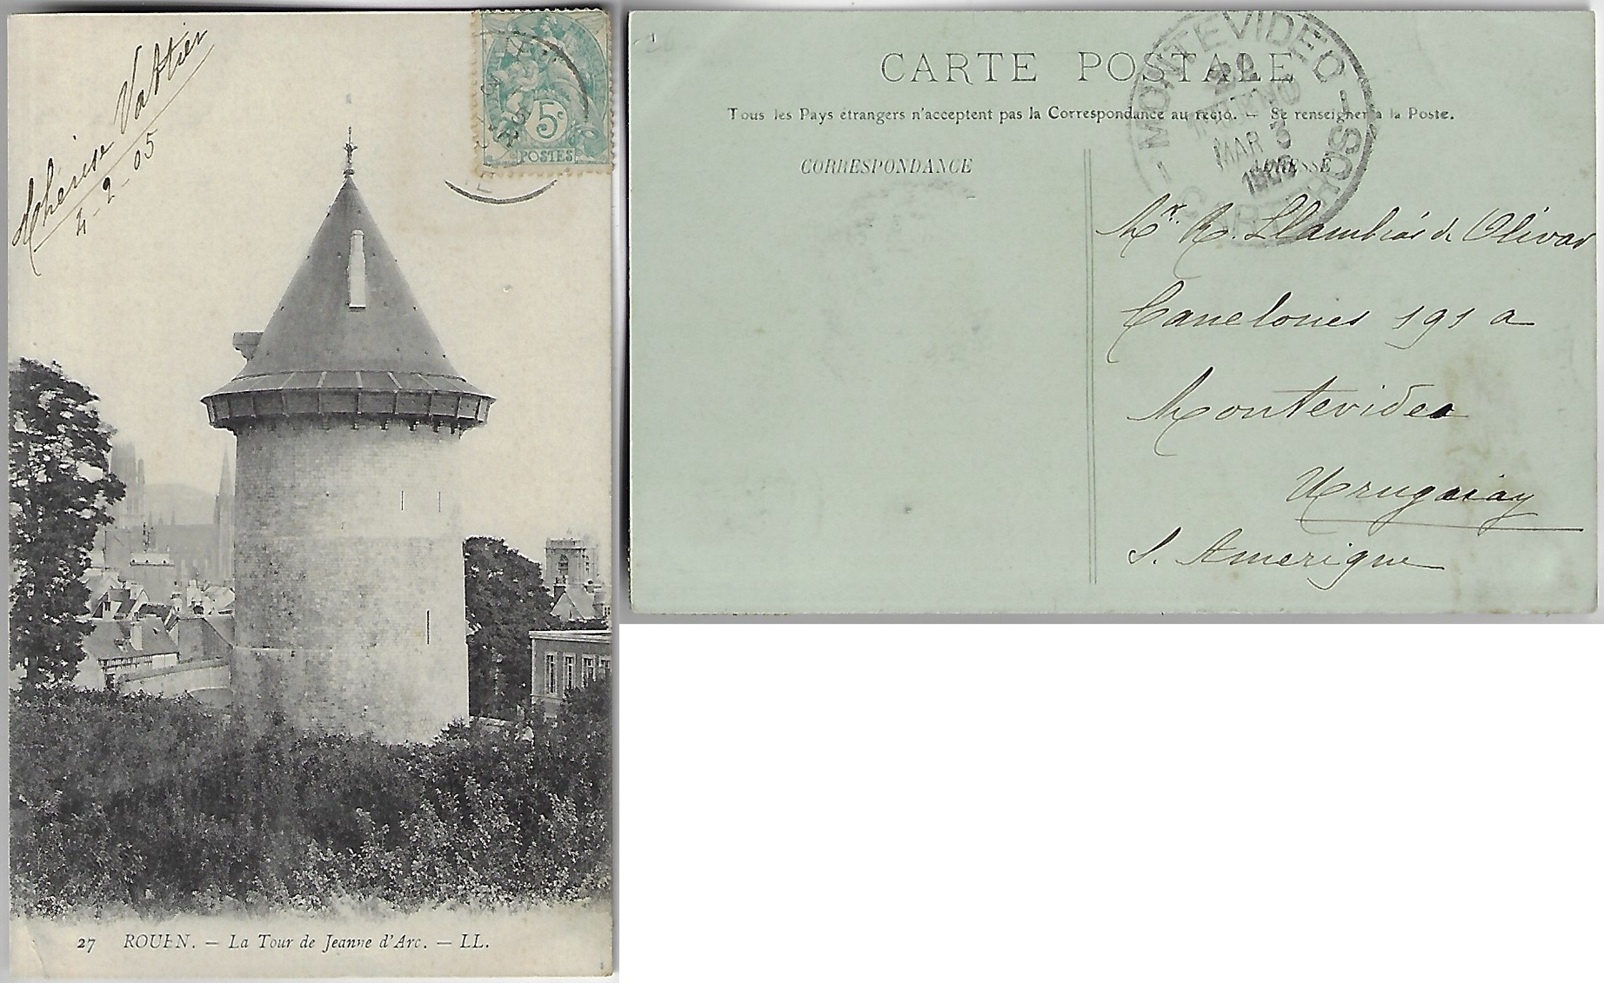 Thérèse Vattier
4-2-05
5c
POSTES
27 ROUEN. — La Tour de Jeanne d'Arc. — LL.
CARTE POSTALE
Tous les Pays étrangers n'acceptent pas la Correspondance au recto. — Se renseigner à la Poste.
CORRESPONDANCE
ADRESSE
MONTEVIDEO
MAR 3
Mr. R. Llambias de Olivar
Canelones 191 a
Montevideo
Uruguay
S. Amerique